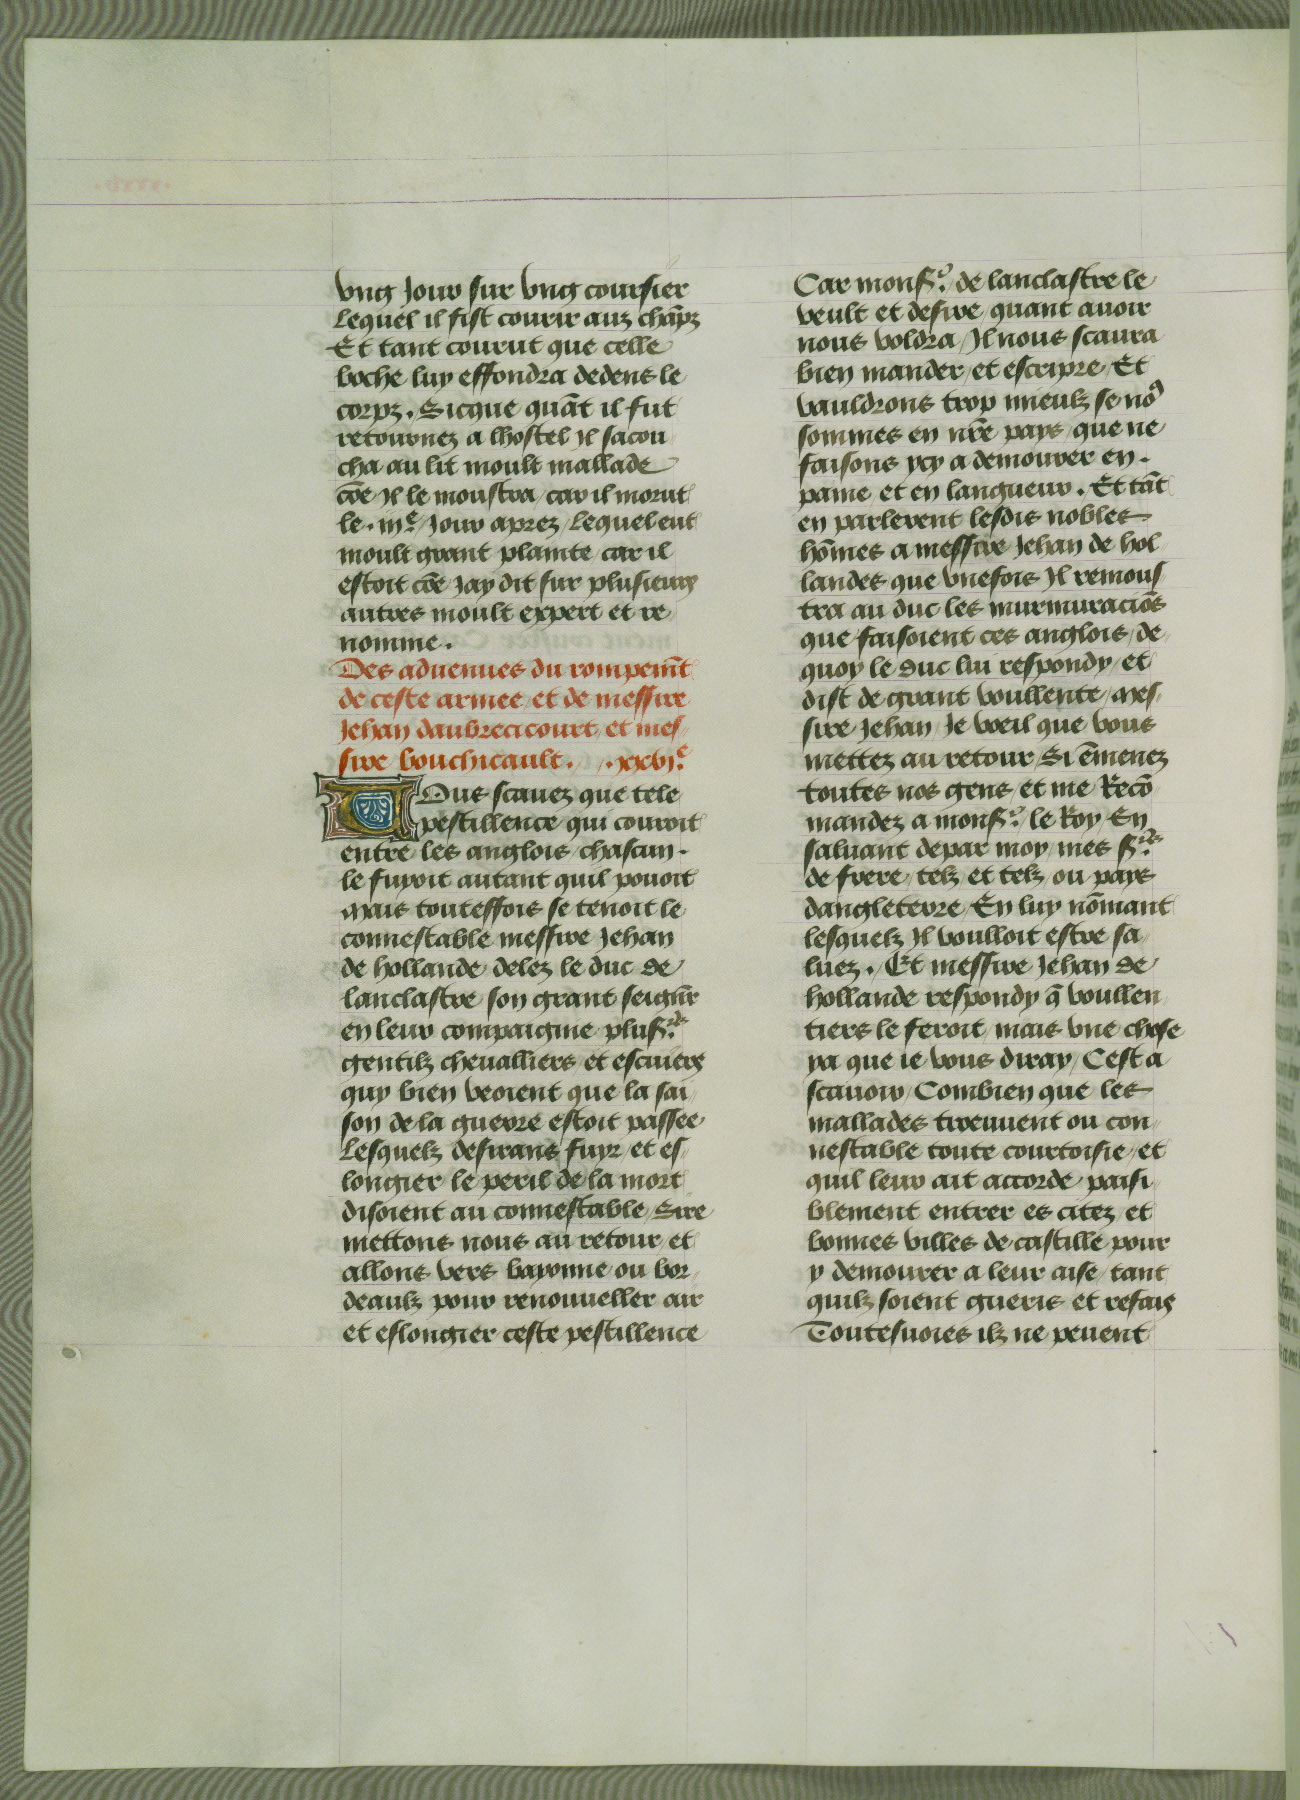 vng Jour sur vng coursier
lequel il fist courir auz chāpz
Et tant courut que celle
boche luy effondra dedens le
corpz. Sicque quāt il fut
retournez a lhostel Jl sacou
cha au lit moult mallade
cōe Jl le monstra / car il morut
le .iiie. Jour aprez / lequel eut
moult grant plainte car il
estoit cōe Jay dit sur plusieurs
autres moult expert et re
nomme.
Des aduenues du rompemēt
de ceste armee / et de messire
Jehan daubrecicourt / et mes-
sire bouchicault. .xxvje.
Vous scauez que tele
pestillence qui couroit
entre les anglois / chascun.
le fuyoit autant quil pouoit
Mais touteffois se tenoit le
connestable messire Jehan
de hollande / delez le duc de
lanclastre son grant seignr̄
en leur compaignie plusrs.
gentilz cheualliers / et escuiers
quy bien veoient que la sai-
son de la guerre estoit passee
Lesquelz desirans fuyr / et es-
longier le peril de la mort
disoient au connestable / Sire
mettons nous au retour / et
allons vers bayonne / ou bor-
deaulz pour renouueller air
et eslongier ceste pestillence
Car monsr. / de lanclastre le
veult et desire / quant auoir
nous voldra / Jl nous scaura
bien mander / et escripre / Et
vauldrons trop mieulz se no9
sommes en nr̄e pays / que ne
faisons ycy a demourer en.
paine et en langueur. Et tāt
en parlerent lesdis nobles
hōmes a messire Jehan de hol-
landes que vnefois Jl remous-
tra au duc les murmuraciōs
que faisoient ces anglois / de
quoy le duc lui respondy / et
dist de grant voullente / Mes-
sire Jehan / Je voeil que vous
mettez au retour / Si ēmenez
toutes nos gens / et me Recō
mandez a monsr. le Roy / En
saluant depar moy / mes srs.
de frere / telz et telz / ou pays
dangleterre / En luy nōmant
lesquelz Jl voulloit estre sa-
luez. / Et messire Jehan de
hollande respondy q̄ voullen
tiers le feroit / mais vne chose
ya que ie vous diray / Cest a
scauoir / Combien que les
mallades treuuent ou con-
nestable toute courtoisie / et
quil leur ait accorde paisi-
blement entrer es citez / et
bonnes villes de castille / pour
y demourer a leur aise / tant
quilz soient gueris et refais
Toutesuoies ilz ne peuent